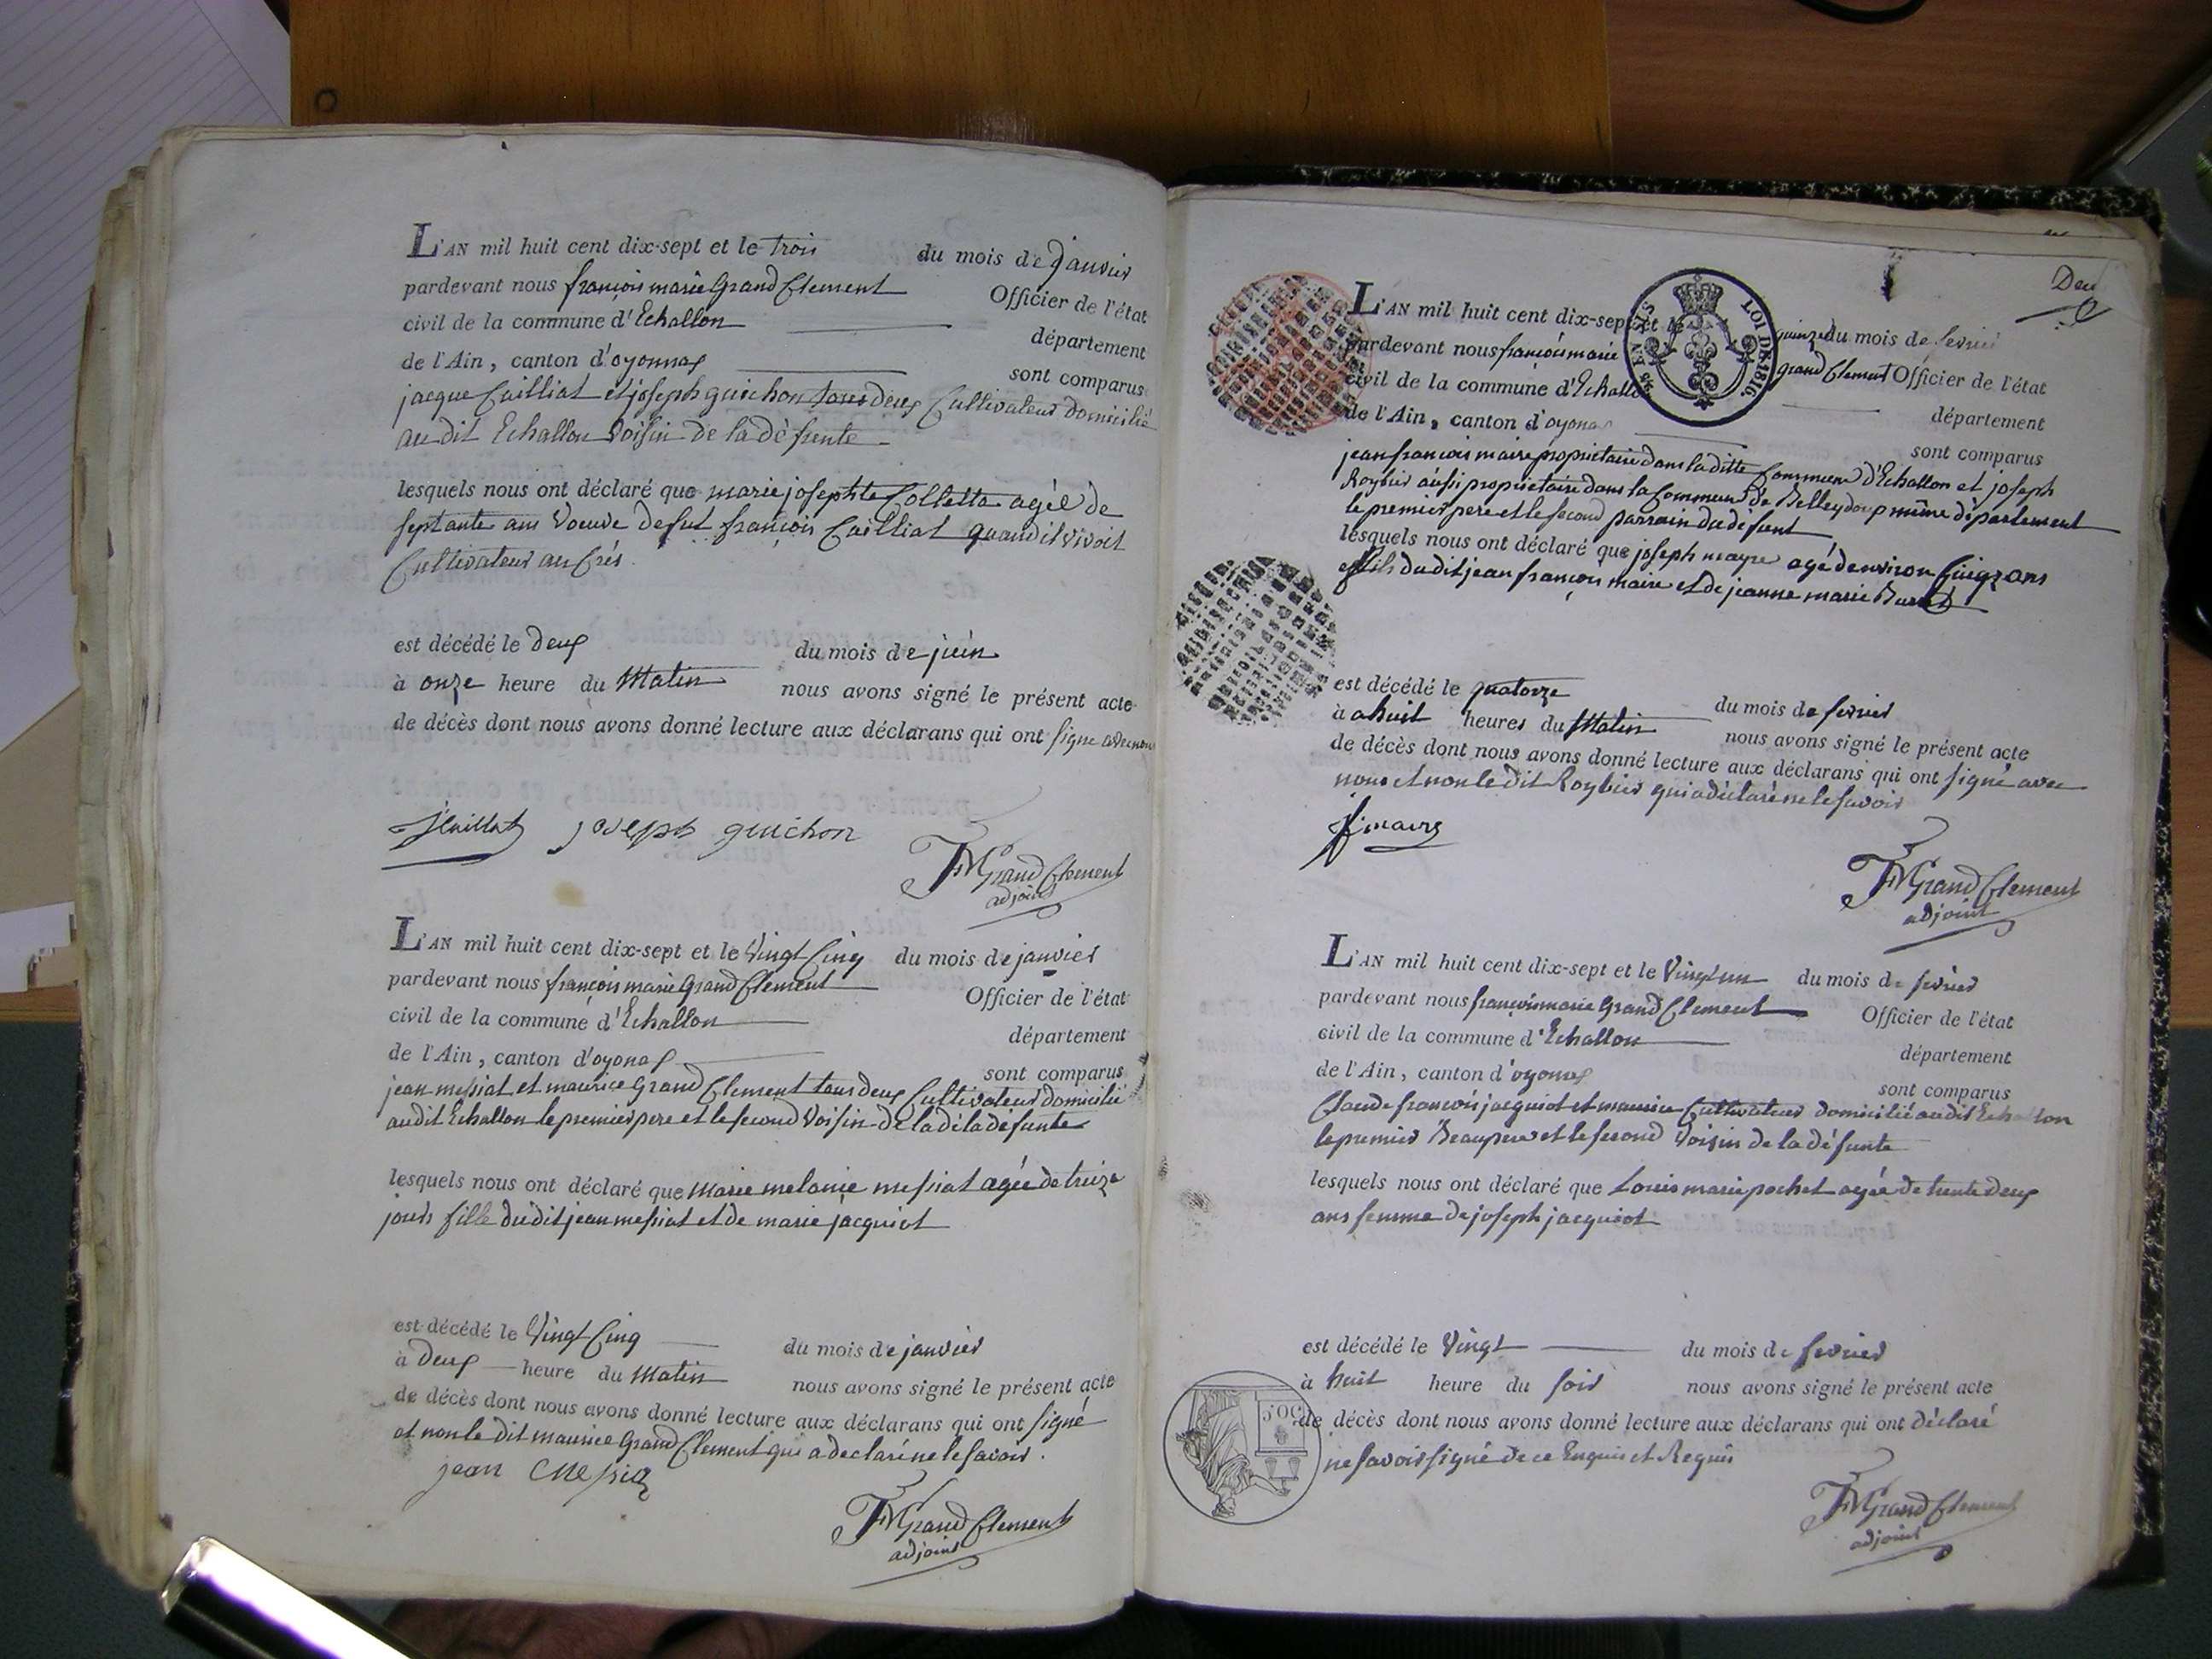 L'AN mil huit cent dix-sept et le trois du mois de Janvier
pardevant nous françois marie Grand Clement Officier de l'état
civil de la commune d'Echallon département
de l'Ain, canton d'oyonnax sont comparus
jacque Cailliat et joseph guichon tous deux Cultivateur domicilié
au dit Echallon Voisin de la défunte
lesquels nous ont déclaré que marie josephte Colletta agée de
septante ans Voeuve de fut françois Cailliat quand il vivoit
Cultivateur au Crés
est décédé le deux du mois de juin
à onze heure du Matin nous avons signé le présent acte
de décès dont nous avons donné lecture aux déclarans qui ont signe avec nous
jCaillat joseph guichon
FMGrand Clement
adjoint
L'AN mil huit cent dix-sept et le Vingt Cinq du mois de janvier
pardevant nous françois marie Grand Clement Officier de l'état
civil de la commune d'Echallon département
de l'Ain, canton d'oyonax sont comparus
jean messiat et maurice Grand Clement tous deux Cultivateur domicilié
audit Echallon le premier pere et le second Voisin de la dila défunte
lesquels nous ont déclaré que Marie melanie messiat agée de treize
jours fille du dit jean messiat et de marie jacquiot
est décédé le Vingt Cinq du mois de janvier
à deux heure du Matin nous avons signé le présent acte
de décès dont nous avons donné lecture aux déclarans qui ont signé
et non le dit maurice Grand Clement qui a declaré ne le savoir.
jean Messia
FMGrand Clement
adjoint
Deux
L'AN mil huit cent dix-sept et le quinze du mois de fevrier
pardevant nous françois marie grand Clement Officier de l'état
civil de la commune d'Echallon département
de l'Ain, canton d'oyonax sont comparus
LOI DE 1816.
jean francois maire proprietaire dans la ditte Commune d'Echallon et joseph
Roybier aussi proprietaire dans la Commune de Belleydoux même département
le premier pere et le second parrain du défunt
lesquels nous ont déclaré que joseph mayre agé d'environ Cinq ans
fils du dit jean françois maire et de jeanne marie
est décédé le quatorze du mois de fevrier
à a huit heures du Matin nous avons signé le présent acte
de décès dont nous avons donné lecture aux déclarans qui ont signé avec
nous et non le dit Roybier qui a déclaré ne le savoir
jfmaire
FMGrand Clement
adjoint
L'AN mil huit cent dix-sept et le Vingt un du mois de fevrier
pardevant nous françois marie Grand Clement Officier de l'état
civil de la commune d'Echallon département
de l'Ain, canton d'oyonax sont comparus
Claude francois jacquiot et maurice Cultivateur domicilié au dit Echallon
le premier Beaupere et le second Voisin de la défunte
lesquels nous ont déclaré que Louis marie pochet agée de trente deux
ans femme de joseph jacquiot
est décédé le Vingt du mois de fevrier
à huit heure du soir nous avons signé le présent acte
de décès dont nous avons donné lecture aux déclarans qui ont déclaré
ne savoir signé de ce Enquis et Requis
5OC.
FMGrand Clement
adjoint